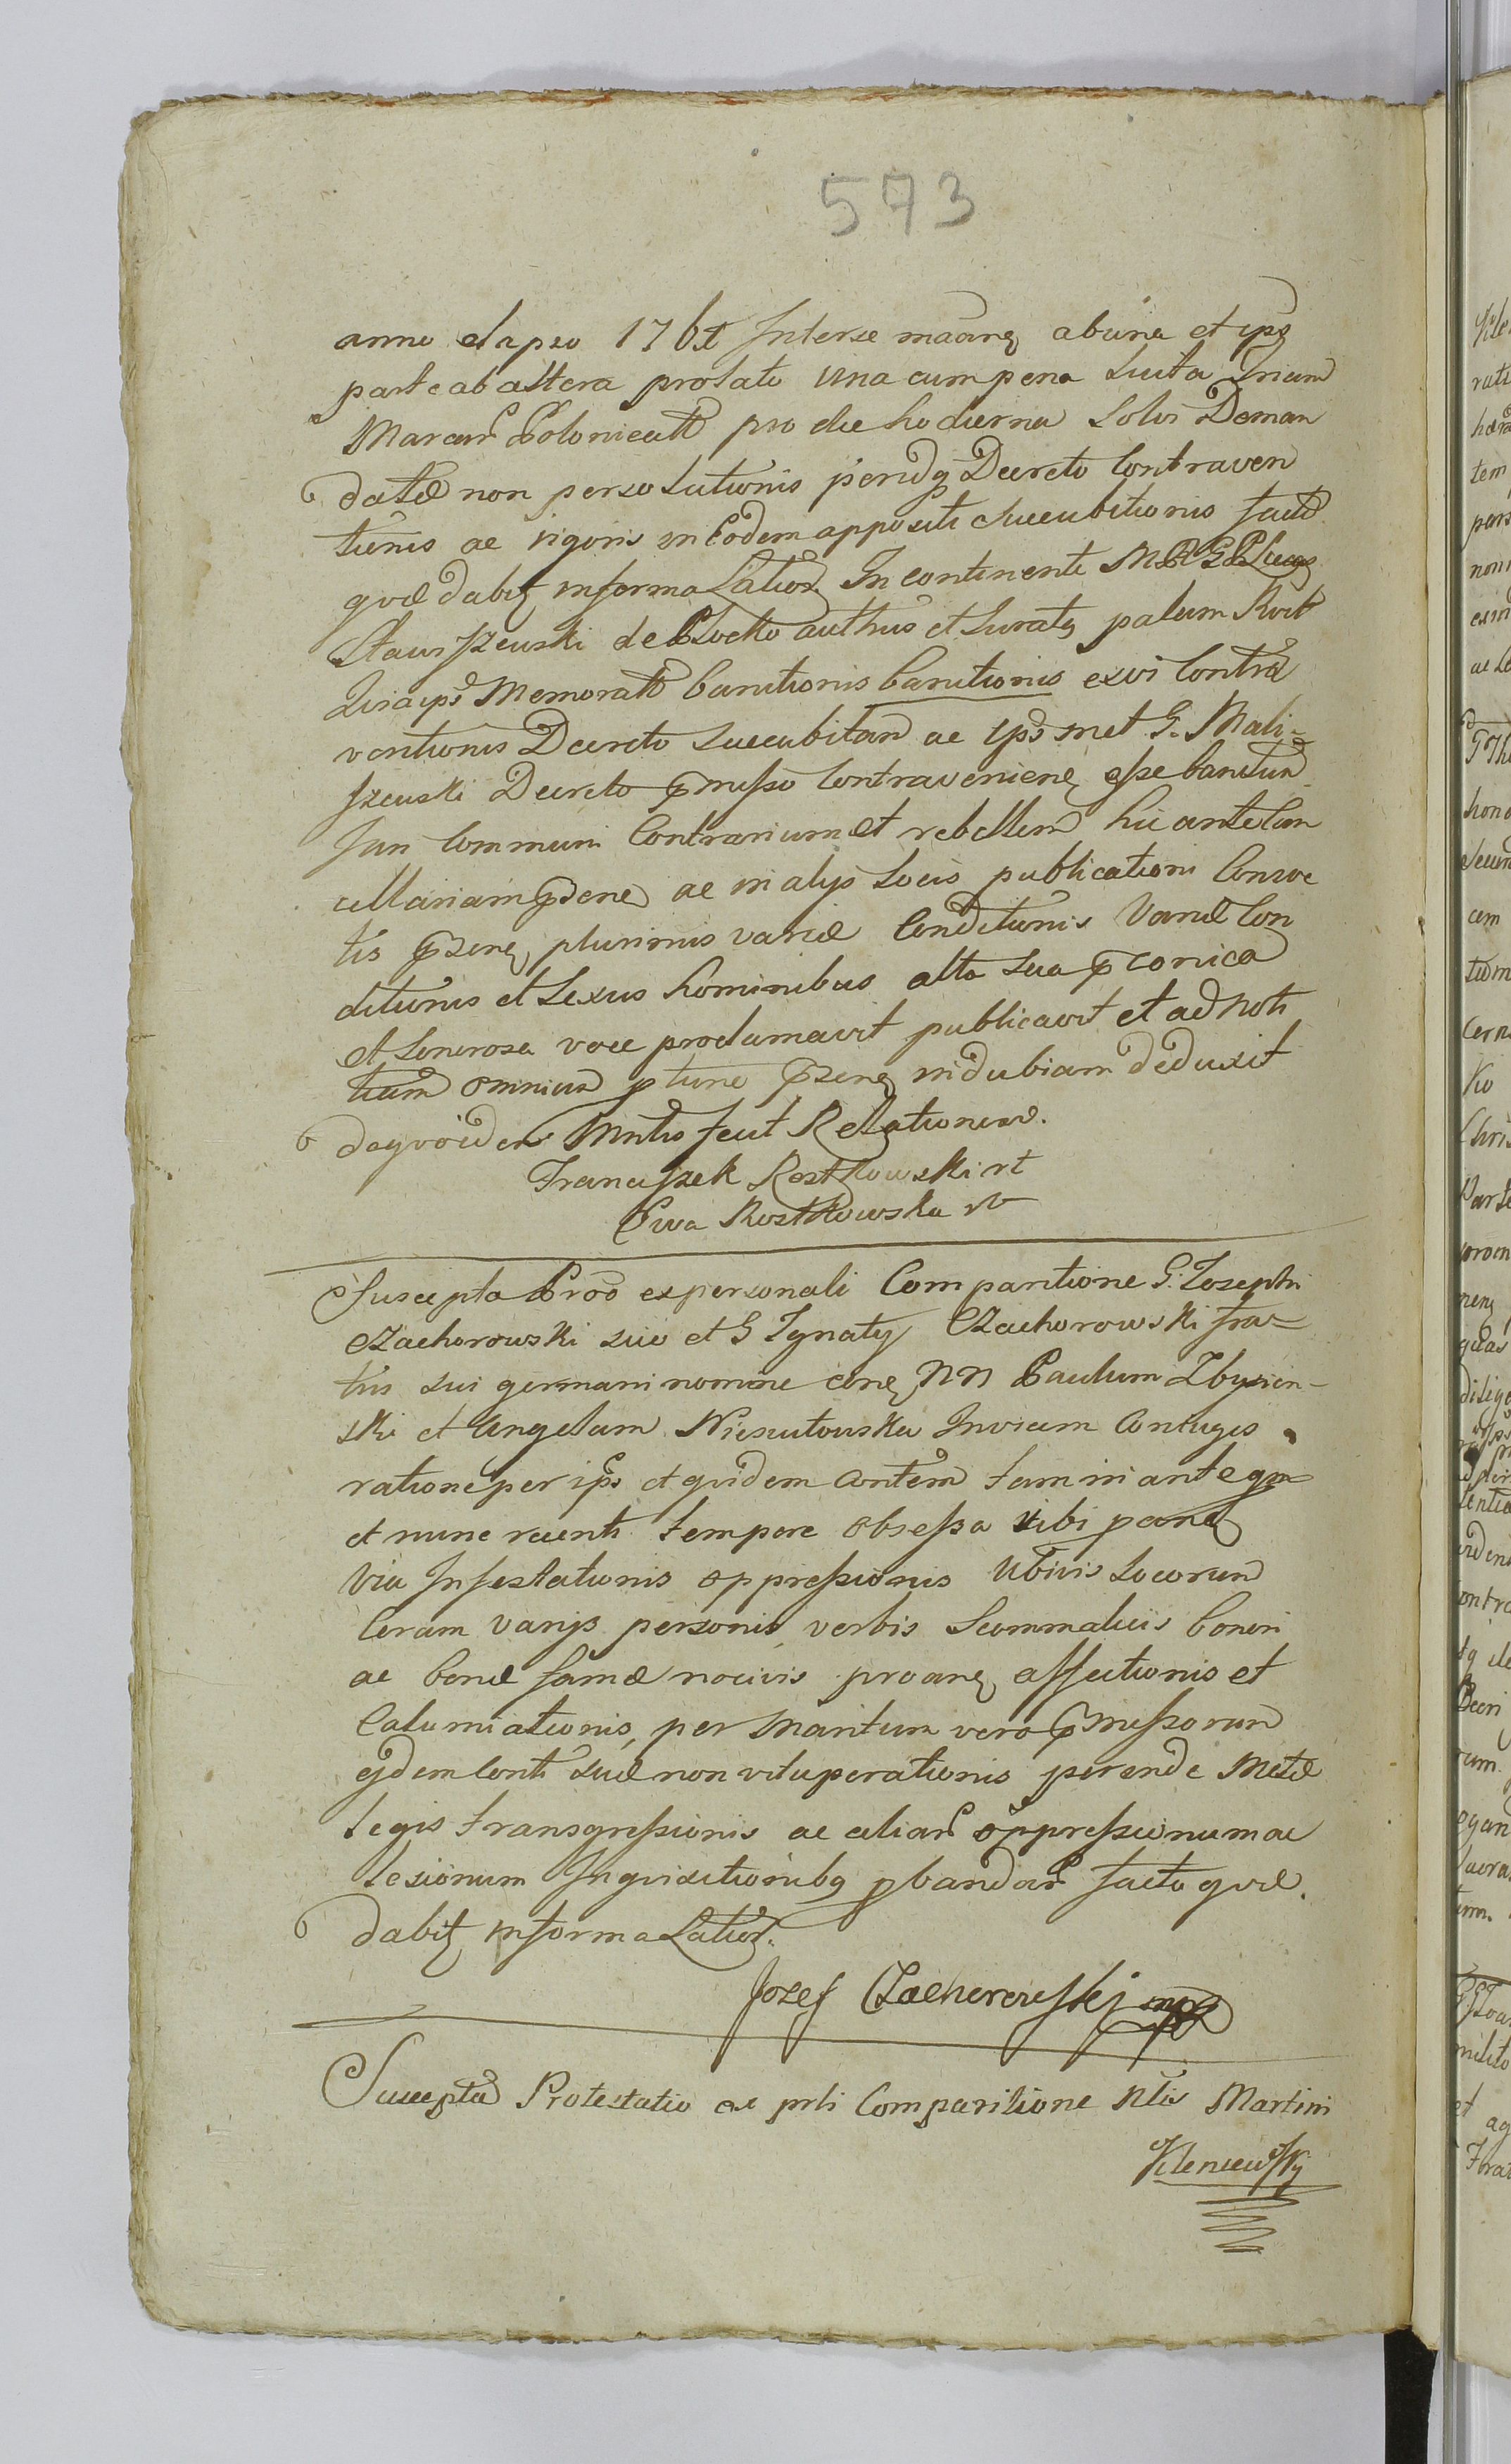 573
anno elapso 1761 Inter se maane abuna et ips
parte ab altera prolato una cum pena Lucta Trium
Marcar Polonicall pro die hodierna Solvi Deman
datæ non persolutionis perndg Decreto Contraven
tionis ac rigoris in Eodem appositi Succubitionis facto
qvæ dabit in forma Latior In continenti MRGD Lucas
Stawiszewski de Plocko authus et Juratg palam
Memorati banitionis banitionis ex vi Contra
ventionis Decreto succubitam ac ipsmet G. Mali=
szewski Decreto pmisso Contravenienē esse banitum
Jur Communi Contrarium et rebellem hic ante Can
cellariam psenē ac in alijs Locis publicationi Consve
tis psenē plurimis variæ Conditionis Variæ Con
ditionis et Sexus hominibus alta sua pconica
et Sonorosa voce proclamavit publicavit et ad Noti
tiam omnium p tunc psenē indubiam deduxit
deqvo iden Mntro fecit Relationem.
Franciszek Rostkowski rt
Ewa Rostkowska rt
Suscepta Proō ex personali Comparitione G. Josephi
Czachorowski suo et G Ignaty Czachorowski fra=
tris sui germani nomine conē NN Paulum Zbysin-
ski et Angelam Niesiutowska Invicem Conjuges
ratione per ips et qvidem Contem tam in antegm
et nunc recenti tempore obsessa sibi parnæ
Via Infestationis oppressionis Ubivis Locorum
Coram varijs personis verbis Scommaticis honori
ac bonæ famæ nocivis pro anē affectionis et
Calumiationis, per Maritum vero pmissorum
ejdem Conti suæ non vituperationis perende Metæ
Legis transgressionis ac aliar oppressionum ac
Lesionum Inqvisitionibg pbandar facto qvæ
dabit in forma Latior.
Jozef Czachorowskj mpp
Suscepta Protestatio ex prli Comparitione Nlis Martini
Kleniewsky